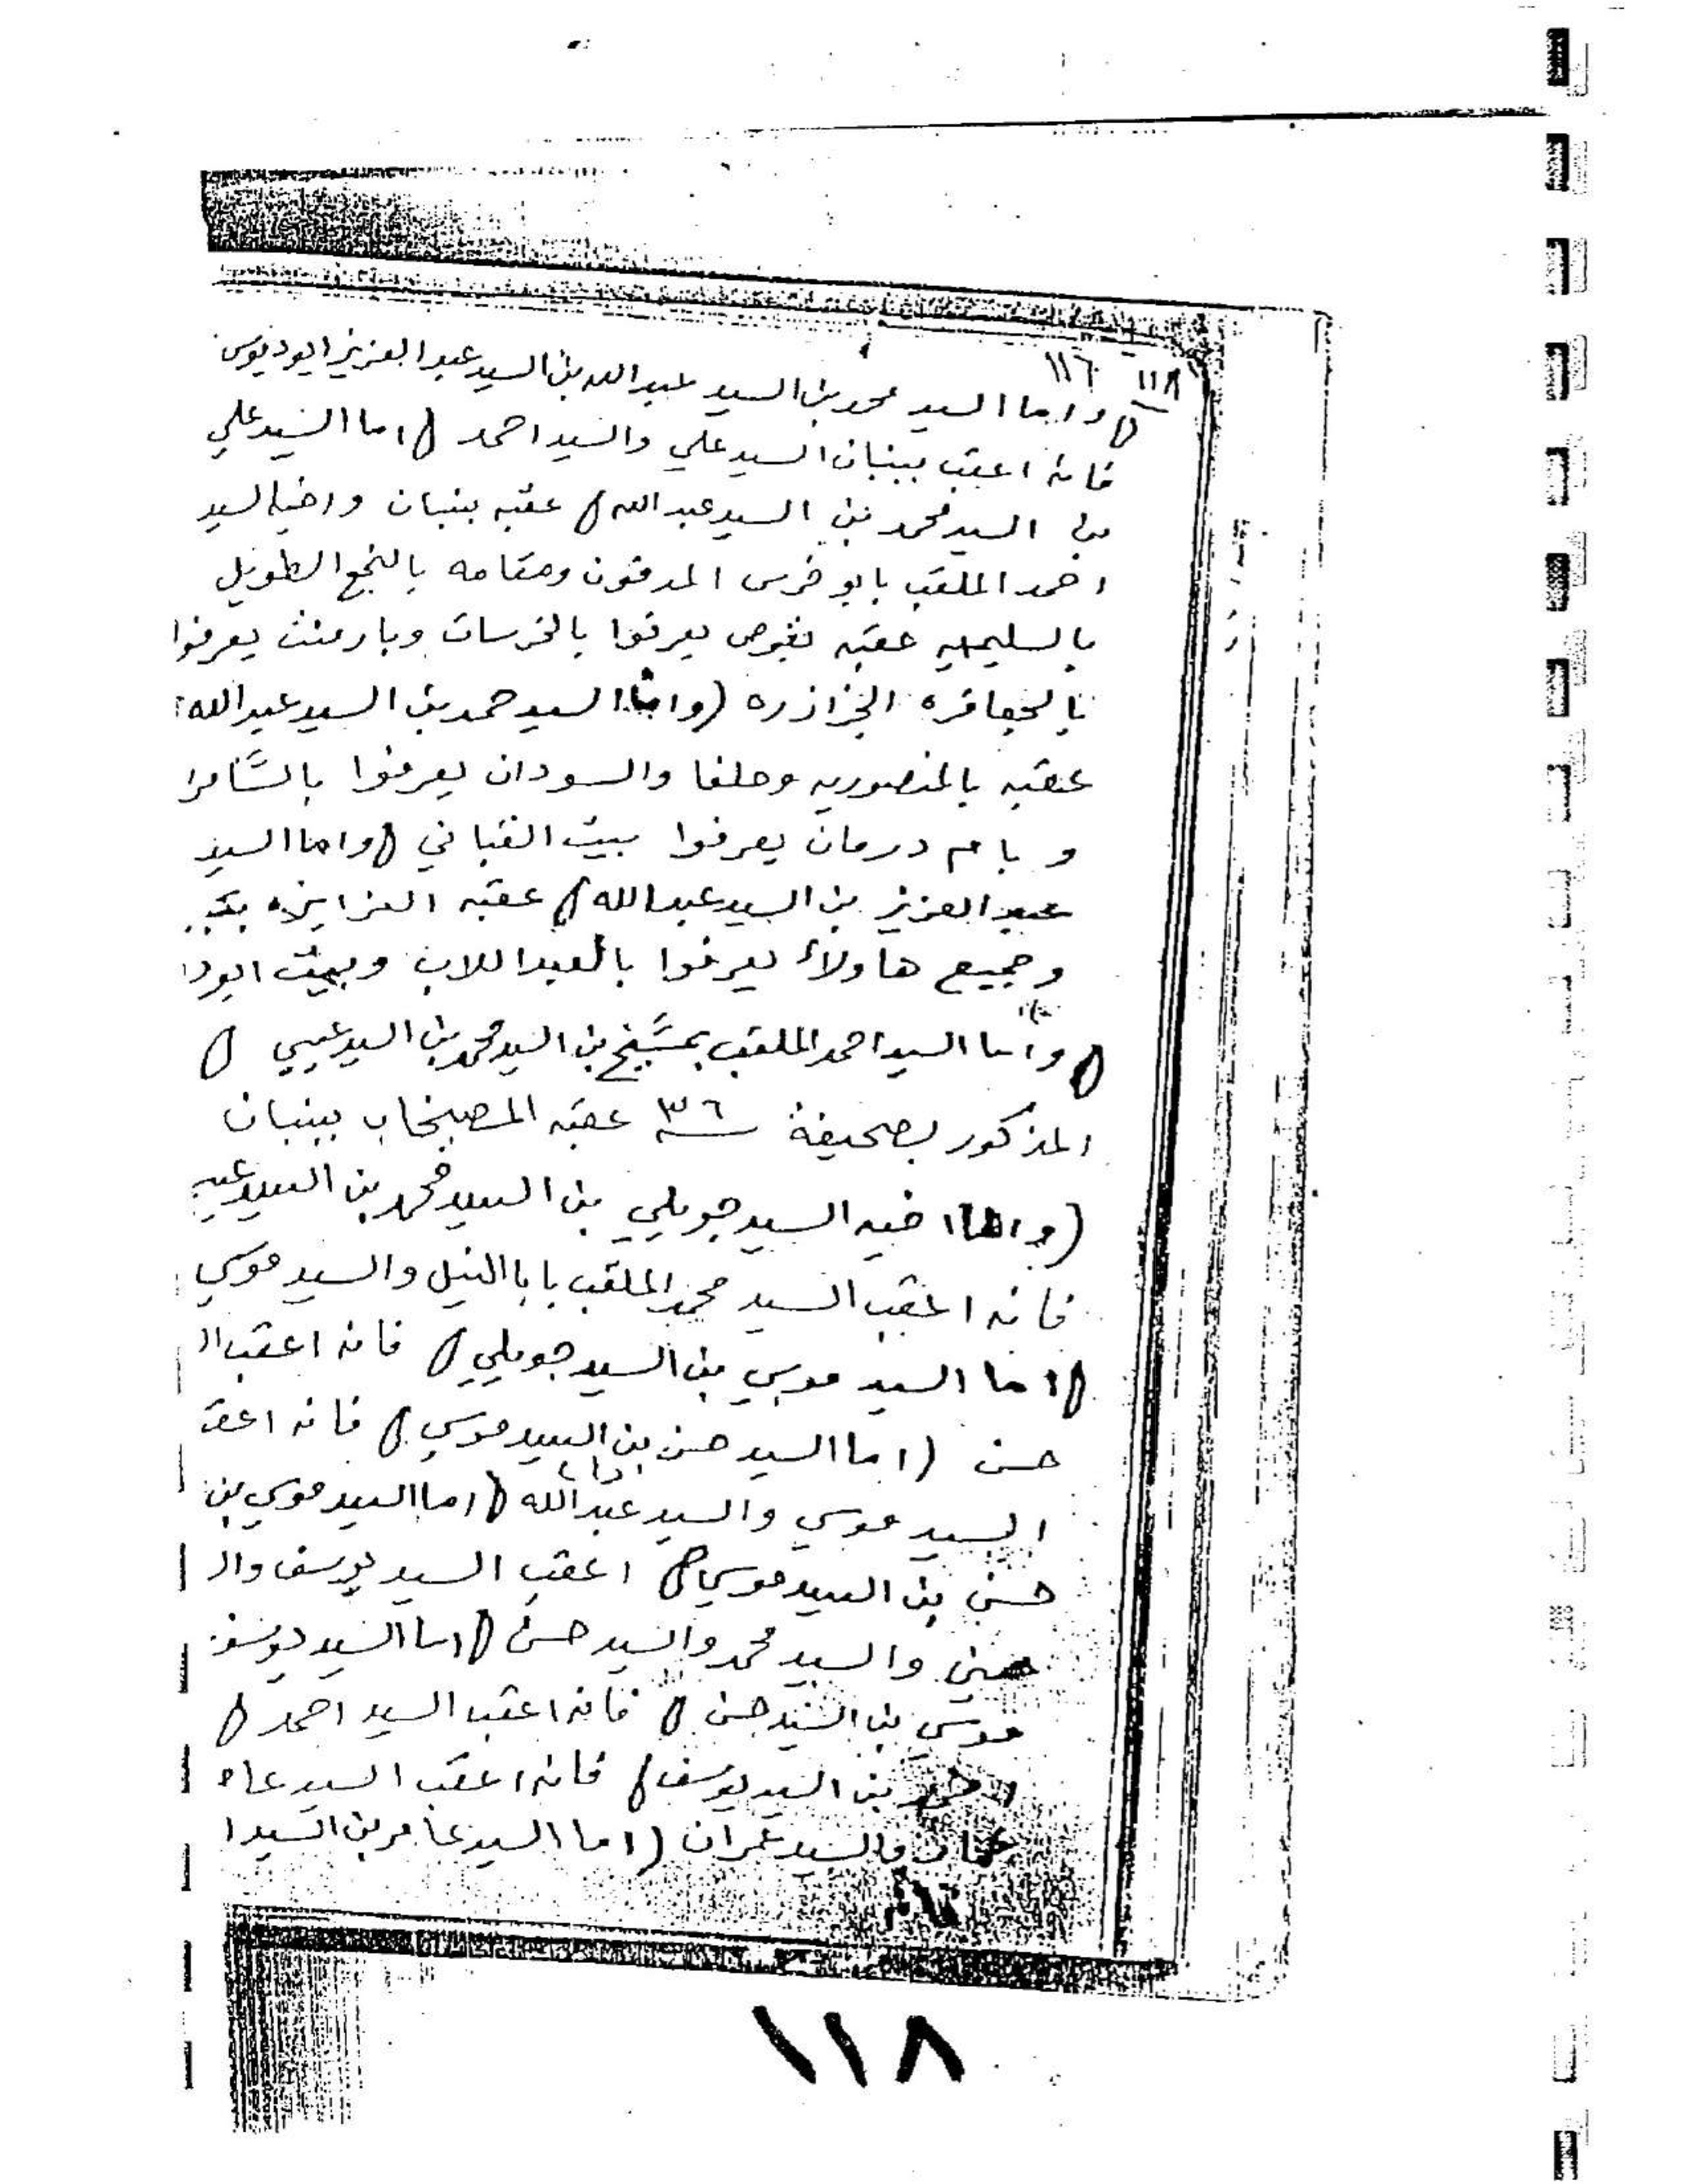 ١١٨ ١١٦
( واما السيد محمد بن السيد عبدالله بن السيد عبد العزيز ابو دبوس
فانه اعقب ببنبان السيد علي والسيد احمد ( اما السيد علي
بن السيد محمد بن السيد عبدالله ( عقبه ببنبان واخيه السيد
احمد الملقب بابو خرس المدفون ومقامه بالنجع الطويل
بالسليميه عقبه بقوص يعرفوا بالخرسات وبارمنت يعرفوا
بالجعافره الخزازره (واما السيد حمد بن السيد عبد الله
عقبه بالمنصوريه وحلفا والسودان يعرفوا
وبام درمان يعرفوا ببيت القباني ( واما السيد
عبد العزيز بن السيد عبدالله ( عقبه العزايزه
وجميع هاولاء يعرفوا بالعبداللاب وبيت ابود
( واما السيد احمد الملقب بن السيد محمد بن السيد عيسي (
المذكور بصحيفة ٣٦ عقبه ببنبان
(واما اخيه السيد جويلي بن السيد محمد بن السيد
فانه اعقب السيد محمد الملقب بابا النيل والسيد موسي
( اما السيد موسي بن السيد جويلي ( فانه اعقب ال
حسن (اما السيد حسن بن السيد موسي ( فانه اعق
السيد موسي والسيد عبدالله ( اما السيد موسي بن
حسن بن السيد موسي ( اعقب السيد يوسف وال
والسيد محمد والسيد حسن ( اما السيد يوسف
موسي بن السيد حسن ( فانه اعقب السيد احمد (
بن السيد يوسف ( فانه اعقب السيد عام
والسيد عمران (اما السيد عامر بن السيد ا
١١٨